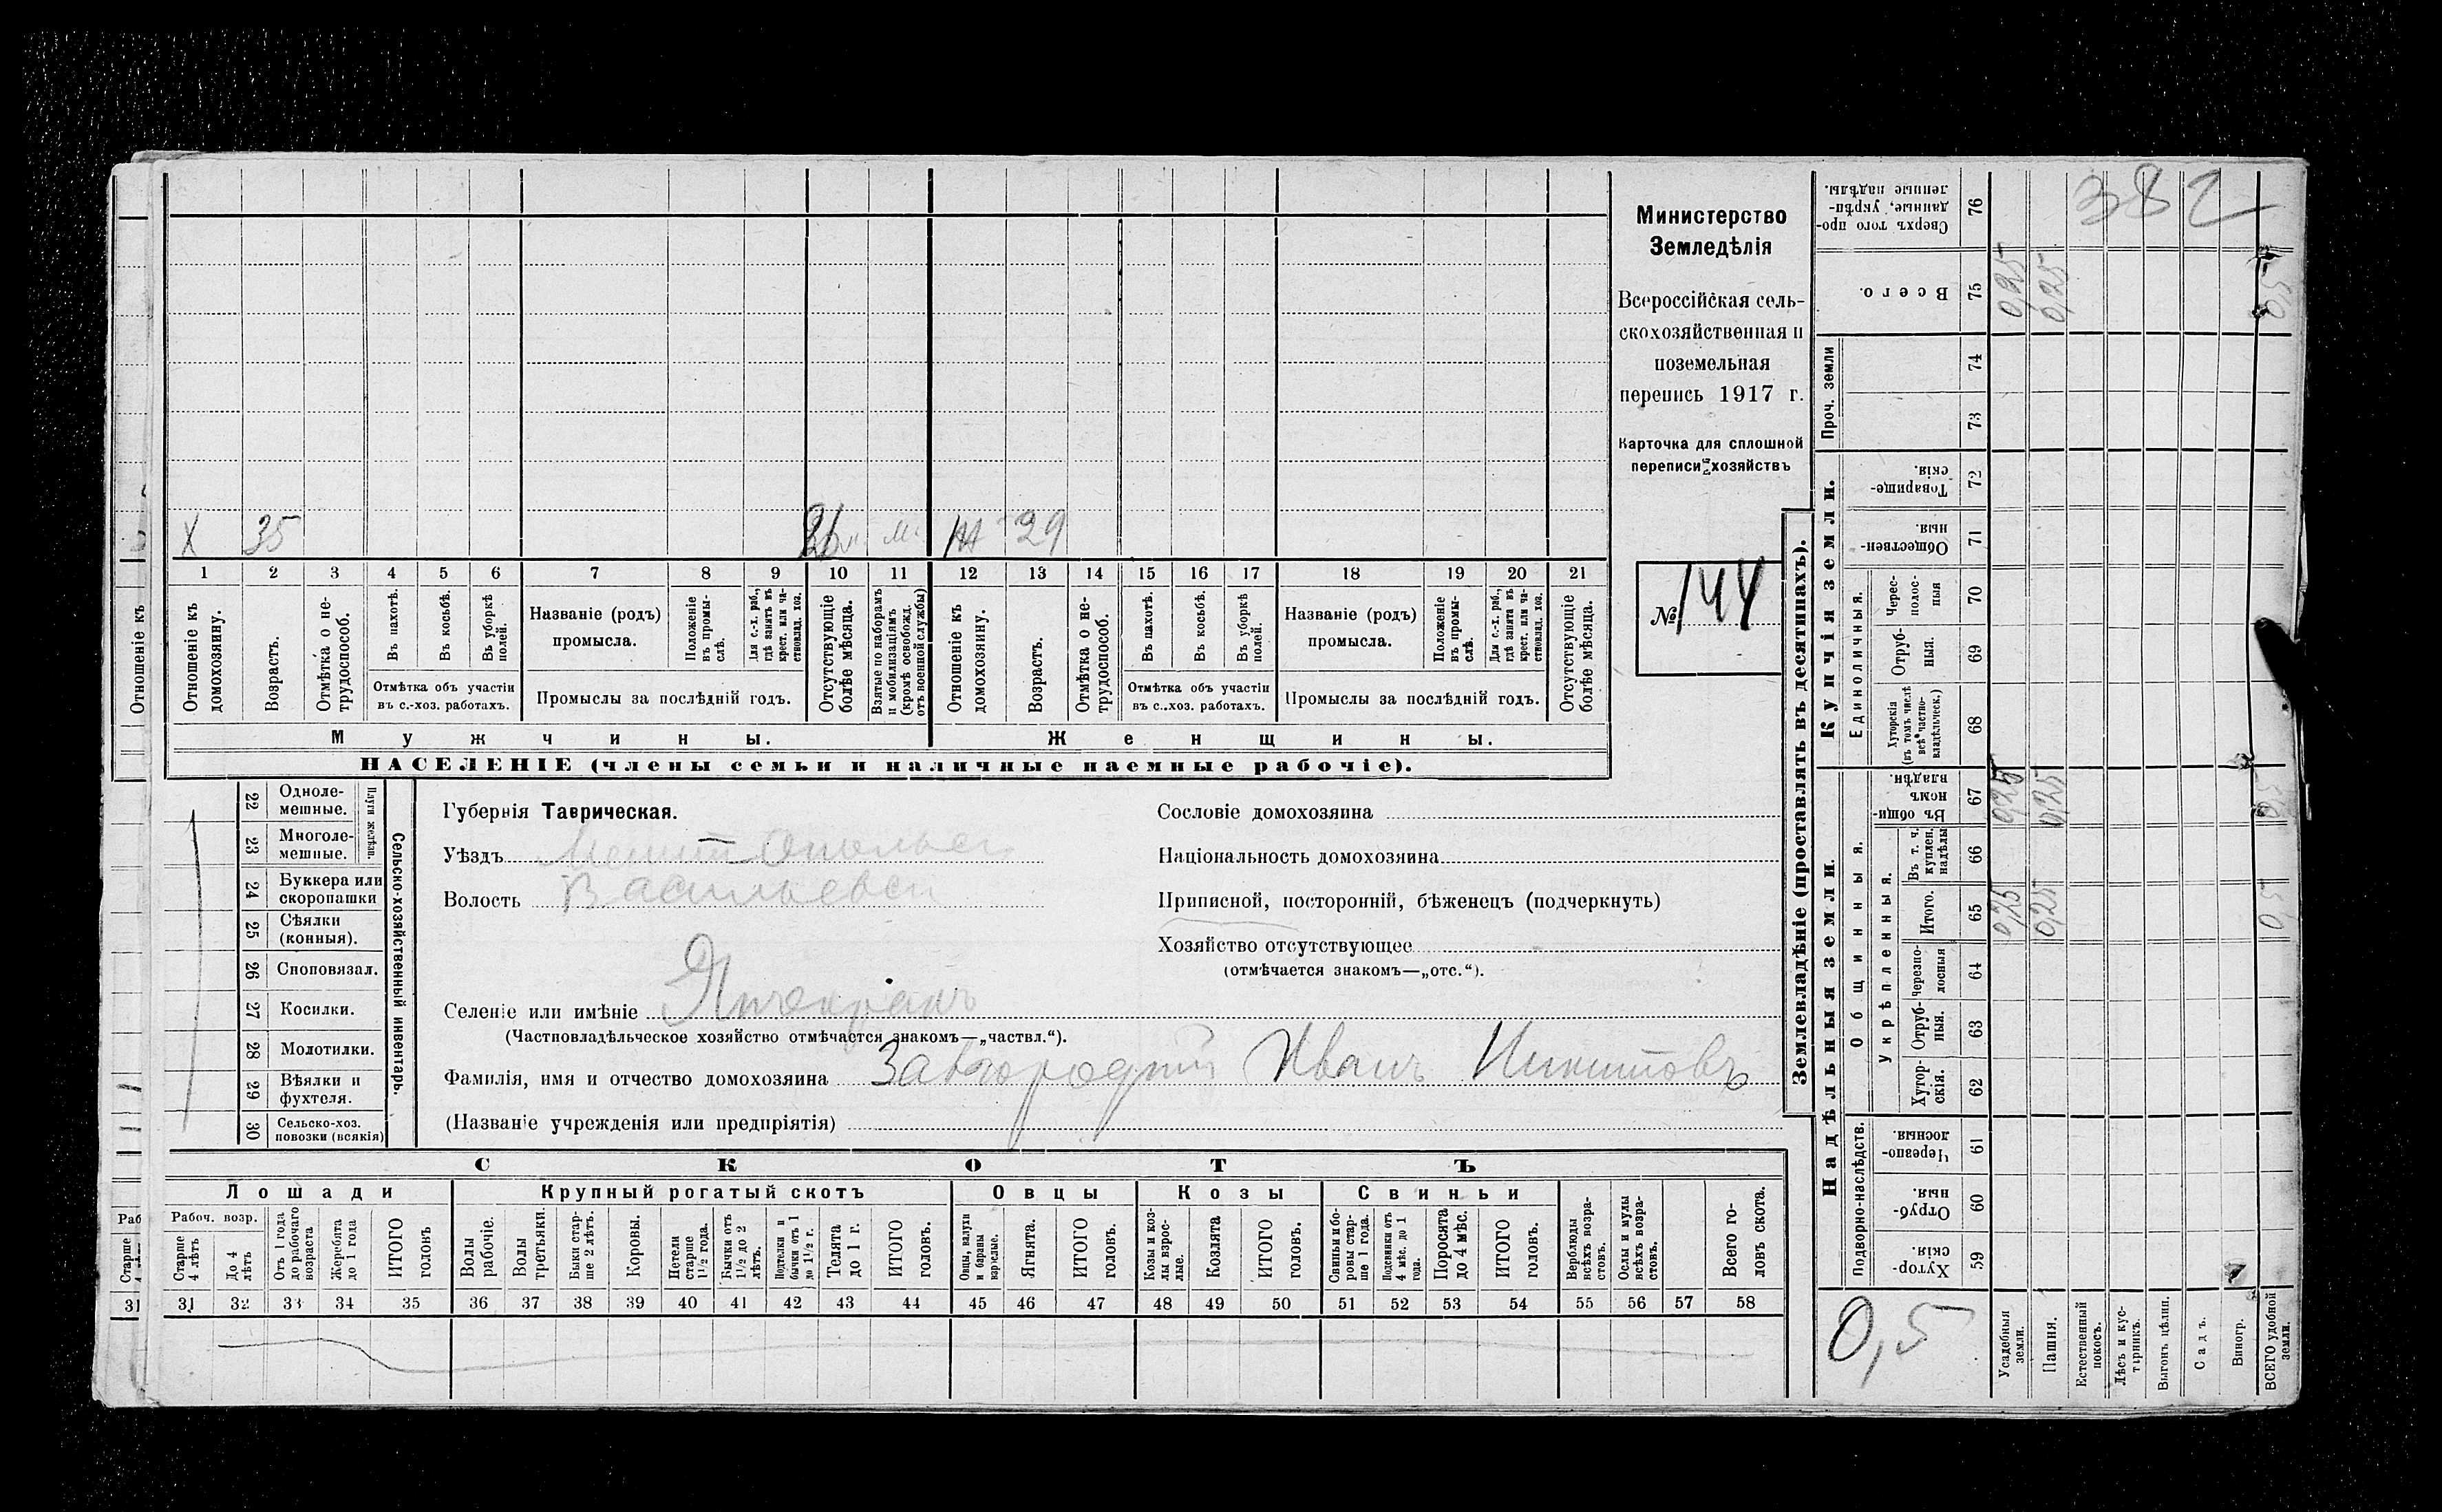 382
Министерство
Земледѣлія
Всероссійская сель-
скохозяйственная и
поземельная
перепись 1917 г.
Карточка для сплошной
переписи хозяйствъ
№ 144
Х 35 м. 29
1 2 3 4 5 6 7 8 9 10 11 12 13 14 15 16 17 18 19 20 21
Отношеніе къ
Отношеніе къ домохозяину.
Возрастъ.
Отмѣтка о не-трудоспособ.
Въ пахотѣ.
Въ косьбѣ.
Въ уборкѣ полей.
Отмѣтка объ участіи
въ с.-хоз. работахъ.
Названіе (родъ)
промысла.
Положеніе въ промы-слѣ.
Для с.-х. раб., гдѣ занятъ въ крест. или ча-стновлад. хоз.
Промыслы за послѣдній годъ.
Отсутствующіе болѣе мѣсяца.
Взятые по наборамъ и мобилизаціямъ (кромѣ освобожд. отъ военной службы)
Отношеніе къ домохозяину.
Возрастъ.
Отмѣтка о не-трудоспособ.
Въ пахотѣ.
Въ косьбѣ.
Въ уборкѣ полей.
Отмѣтка объ участіи
въ с.-хоз. работахъ.
Названіе (родъ)
промысла.
Положеніе въ промы-слѣ.
Для с.-х. раб., гдѣ занята въ крест. или ча-стновлад. хоз.
Промыслы за послѣдній годъ.
Отсутствующіе болѣе мѣсяца.
Мужчины. Женщины.
НАСЕЛЕНІЕ (члены семьи и наличные наемные рабочіе).
22 Одноле-мешные.
23 Многоле-мешные.
Плуги желѣзн.
24 Буккера или скоропашки
25 Сѣялки (конныя).
26 Сноповязал.
27 Косилки.
28 Молотилки.
29 Вѣялки и фухтеля.
30 Сельско-хоз. повозки (всякія)
Сельско-хозяйственный инвентарь.
Губернія Таврическая.
Уѣздъ Мелитопольск
Волость Васильевск
Селеніе или имѣніе Янчекракъ
(Частновладѣльческое хозяйство отмѣчается знакомъ—„частвл.“).
Фамилія, имя и отчество домохозяина Завгородній Иванъ Никитовъ
(Названіе учрежденія или предпріятія)
Сословіе домохозяина
Національность домохозяина
Приписной, посторонній, бѣженецъ (подчеркнуть)
Хозяйство отсутствующее
(отмѣчается знакомъ—„отс.“).
СКОТЪ
Лошади Крупный рогатый скотъ Овцы Козы Свиньи
Рабоч. возр.
Старше 4 лѣтъ
До 4 лѣтъ
Отъ 1 года до рабочаго возраста
Жеребята до 1 года
ИТОГО головъ
Волы рабочіе.
Волы третьяки.
Быки стар-ше 2 лѣтъ.
Коровы.
Нетели старше 1½ года.
Бычки отъ 1½ до 2 лѣтъ.
Подтелки и бычки отъ 1 до 1½ г.
Телята до 1 г.
ИТОГО головъ.
Овцы, валухи и бараны взрослые.
Ягнята.
ИТОГО головъ.
Козы и коз-лы взрос-лые.
Козлята
ИТОГО головъ.
Свиньи и бо-ровы стар-ше 1 года.
Подсвинки отъ 4 мѣс. до 1 года.
Поросята до 4 мѣс.
ИТОГО головъ.
Верблюды всѣхъ возра-стовъ.
Ослы и мулы всѣхъ возра-стовъ.
Всего го-ловъ скота.
31 31 32 33 34 35 36 37 38 39 40 41 42 43 44 45 46 47 48 49 50 51 52 53 54 55 56 57 58
Землевладѣніе (проставлять въ десятинахъ).
Сверхъ того про-данные, укрѣп-ленные надѣлы. 76
Всего. 75 0,25 0,25 0,5
Проч. земли 74 73
Купчія земли.
Товарище-скія. 72
Обществен-ныя. 71
Единоличныя.
Черес-полос-ныя 70
Отруб-ныя. 69
Хуторскія (въ томъ числѣ всѣ частно-владѣльческ.) 68
Надѣльныя земли.
Общинныя.
Въ общи-номъ владѣн. 67 0,25 0,25 0,5
Укрѣпленныя.
Въ т. ч. куплен. надѣлы 66
Итого. 65 0,25 0,25 0,5
Черезпо-лосныя 64
Отруб-ныя. 63
Хутор-скія. 62
Подворно-наслѣдств.
Черезпо-лосныя 61
Отруб-ныя. 60
Хутор-скія. 59
0,5
Усадебныя земли.
Пашня.
Естественный покосъ.
Лѣсъ и кус-тарникъ.
Выгонъ цѣлин.
Садъ.
Виногр.
ВСЕГО удобной земли.